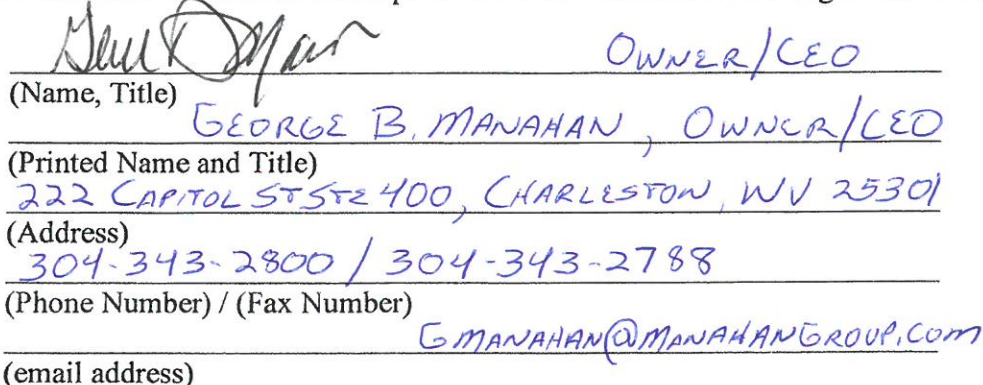 OWNER/CEO
(Name, Title)
GEORGE B. MANAHAN, OWNER/CEO
(Printed Name and Title)
222 CAPITOL ST STE 400, CHARLESTON, WV 25301
(Address)
304-343-2800 / 304-343-2788
(Phone Number) / (Fax Number)
GMANAHAN@MANAHANGROUP.COM
(email address)